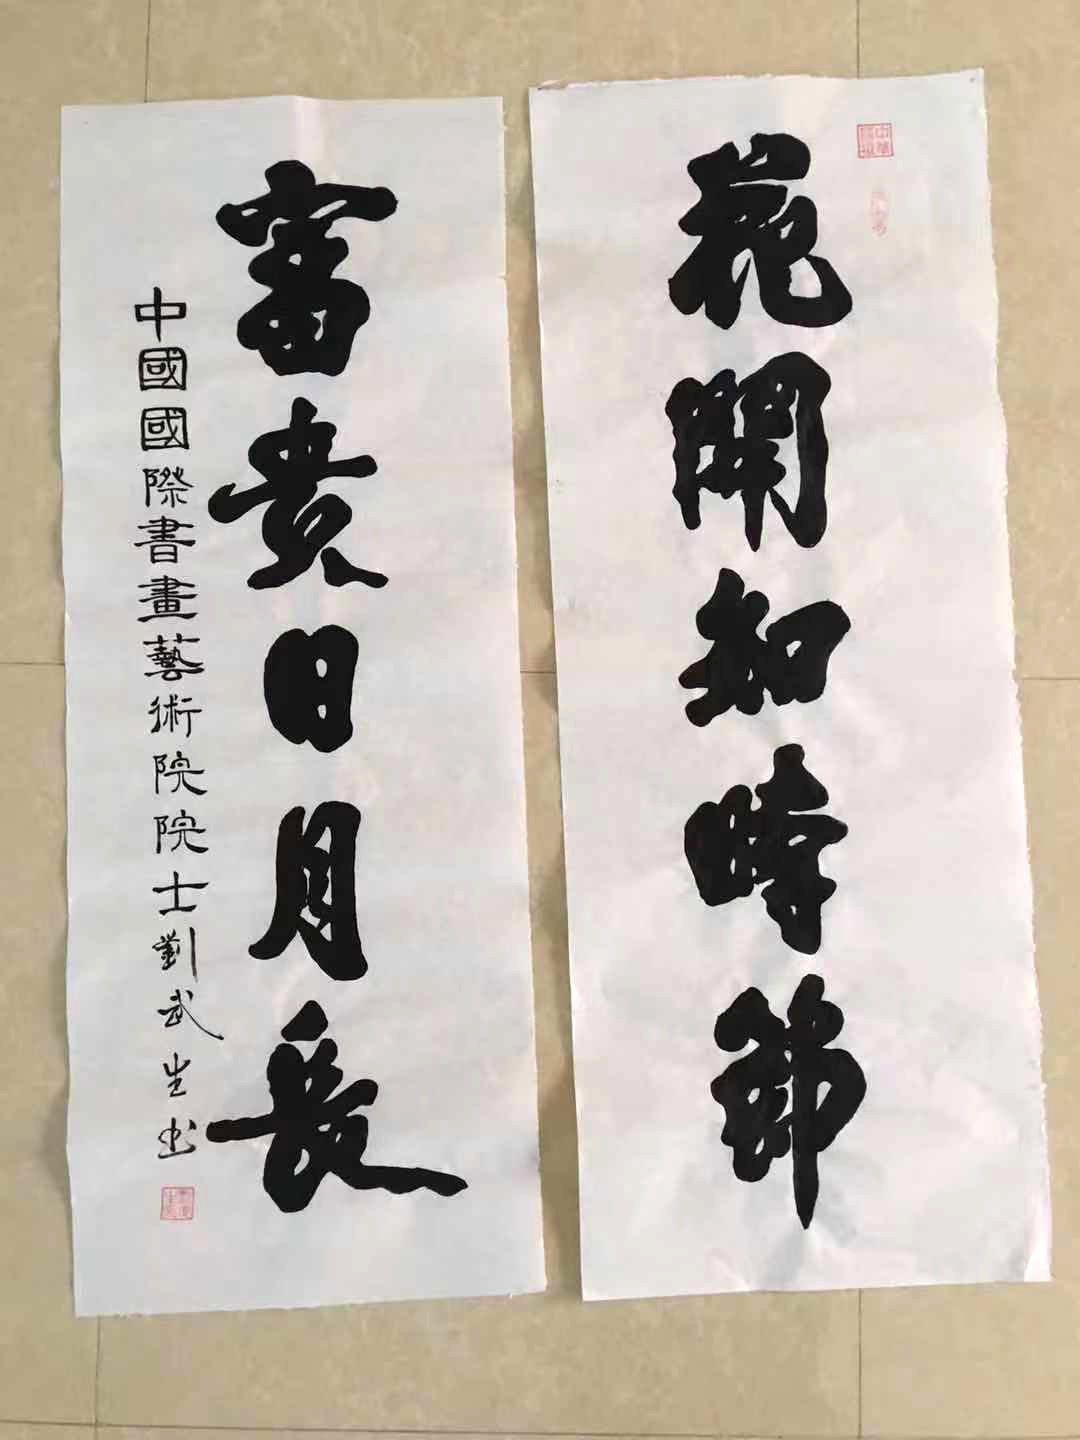 花開知時節
富貴日月長
中國國際書畫藝術院院士劉武生书